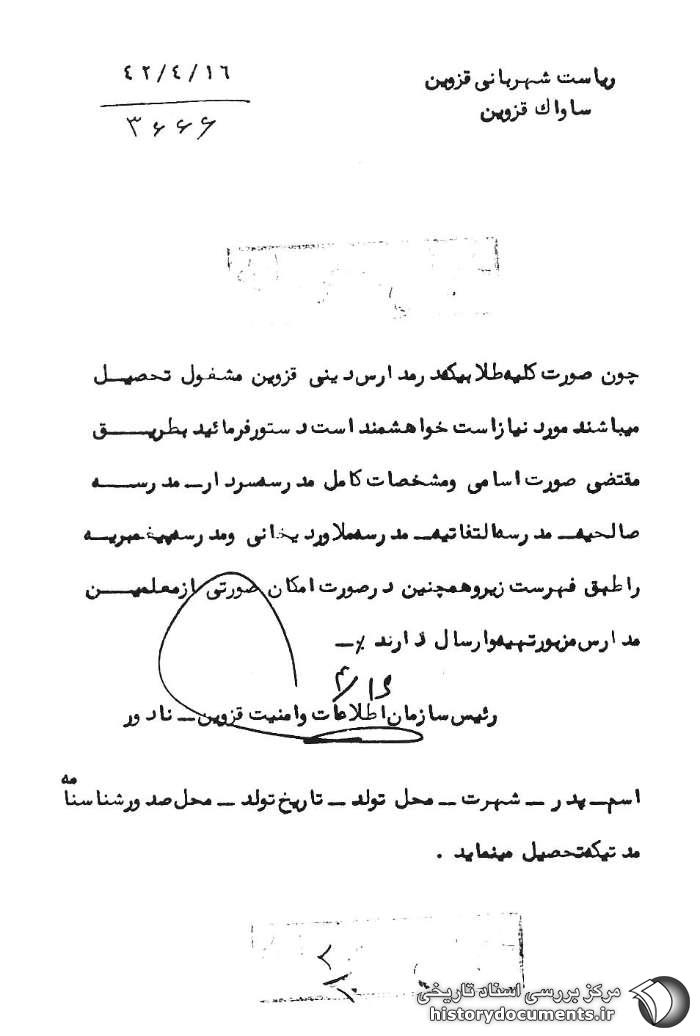 ریاست شهربانی قزوین
ساواک قزوین
۴۲/۴/۱۶
۳۶۶۶
چون صورت کلیه طلابیکه در مدارس دینی قزوین مشغول تحصیل
میباشند مورد نیاز است خواهشمند است دستور فرمائید بطریق
مقتضی صورت اسامی ومشخصات کامل مدرسه سردار ـ مدرسه
صالحیه ـ مدرسه التفاتیه ـ مدرسه ملاوردیخانی ومدرسه پیغمبریه
را طبق فهرست زیر وهمچنین در صورت امکان صورتی از معلمین
مدارس مزبور تهیه وارسال دارند ٪ـ
۴/۱۶
رئیس سازمان اطلاعات وامنیت قزوین ـ نادور
اسم ـ پدر ـ شهرت ـ محل تولد ـ تاریخ تولد ـ محل صدور شناسنامه
مدتیکه تحصیل مینماید .
مرکز بررسی اسناد تاریخی
historydocuments.ir